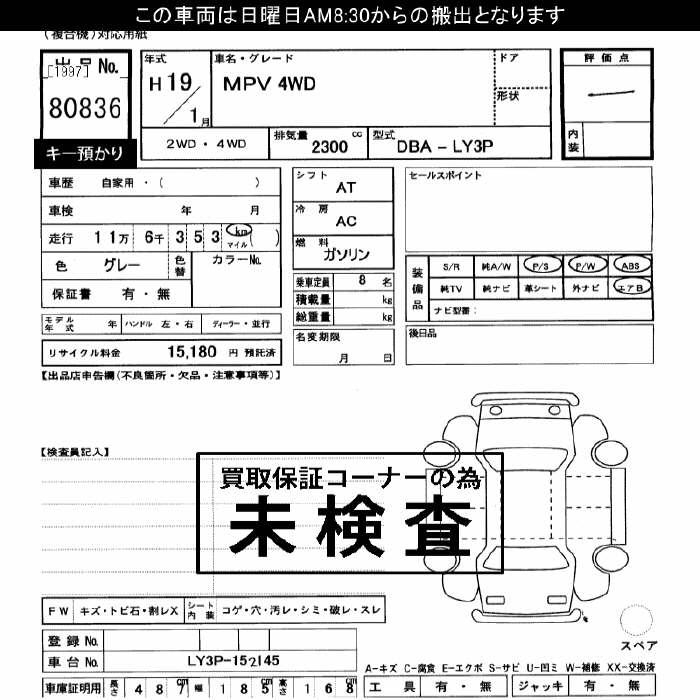 この車両は日曜日AM8:30からの搬出となります
(複合機)対応用紙
出品No. [1997] 80836
キー預かり
年式 H19/1月
車名・グレード MPV 4WD
ドア
形状
評価点
内装
2WD・4WD
排気量 2300 cc
型式 DBA-LY3P
車歴 自家用・( )
車検 年 月
走行 11万 6千 353 km マイル ( )
色 グレー 色替 カラーNo.
保証書 有・無
シフト AT
冷房 AC
燃料 ガソリン
乗車定員 8 名
積載量 kg
総重量 kg
名変期限 月 日
セールスポイント
装備品 S/R 純A/W P/S P/W ABS
純TV 純ナビ 革シート 外ナビ エアB
ナビ型番:
後日品
モデル年式 年 ハンドル 左・右 ディーラー・並行
リサイクル料金 15,180 円 預託済
【出品店申告欄(不良箇所・欠品・注意事項等)】
【検査員記入】
買取保証コーナーの為
未検査
FW キズ・トビ石・割レX シート内装 コゲ・穴・汚レ・シミ・破レ・スレ
登録No.
車台No. LY3P-152145
車庫証明用 長さ 487cm 幅 185cm 高さ 168
スペア
A-キズ C-腐食 E-エクボ S-サビ U-凹ミ W-補修 XX-交換済
工具 有・無 ジャッキ 有・無